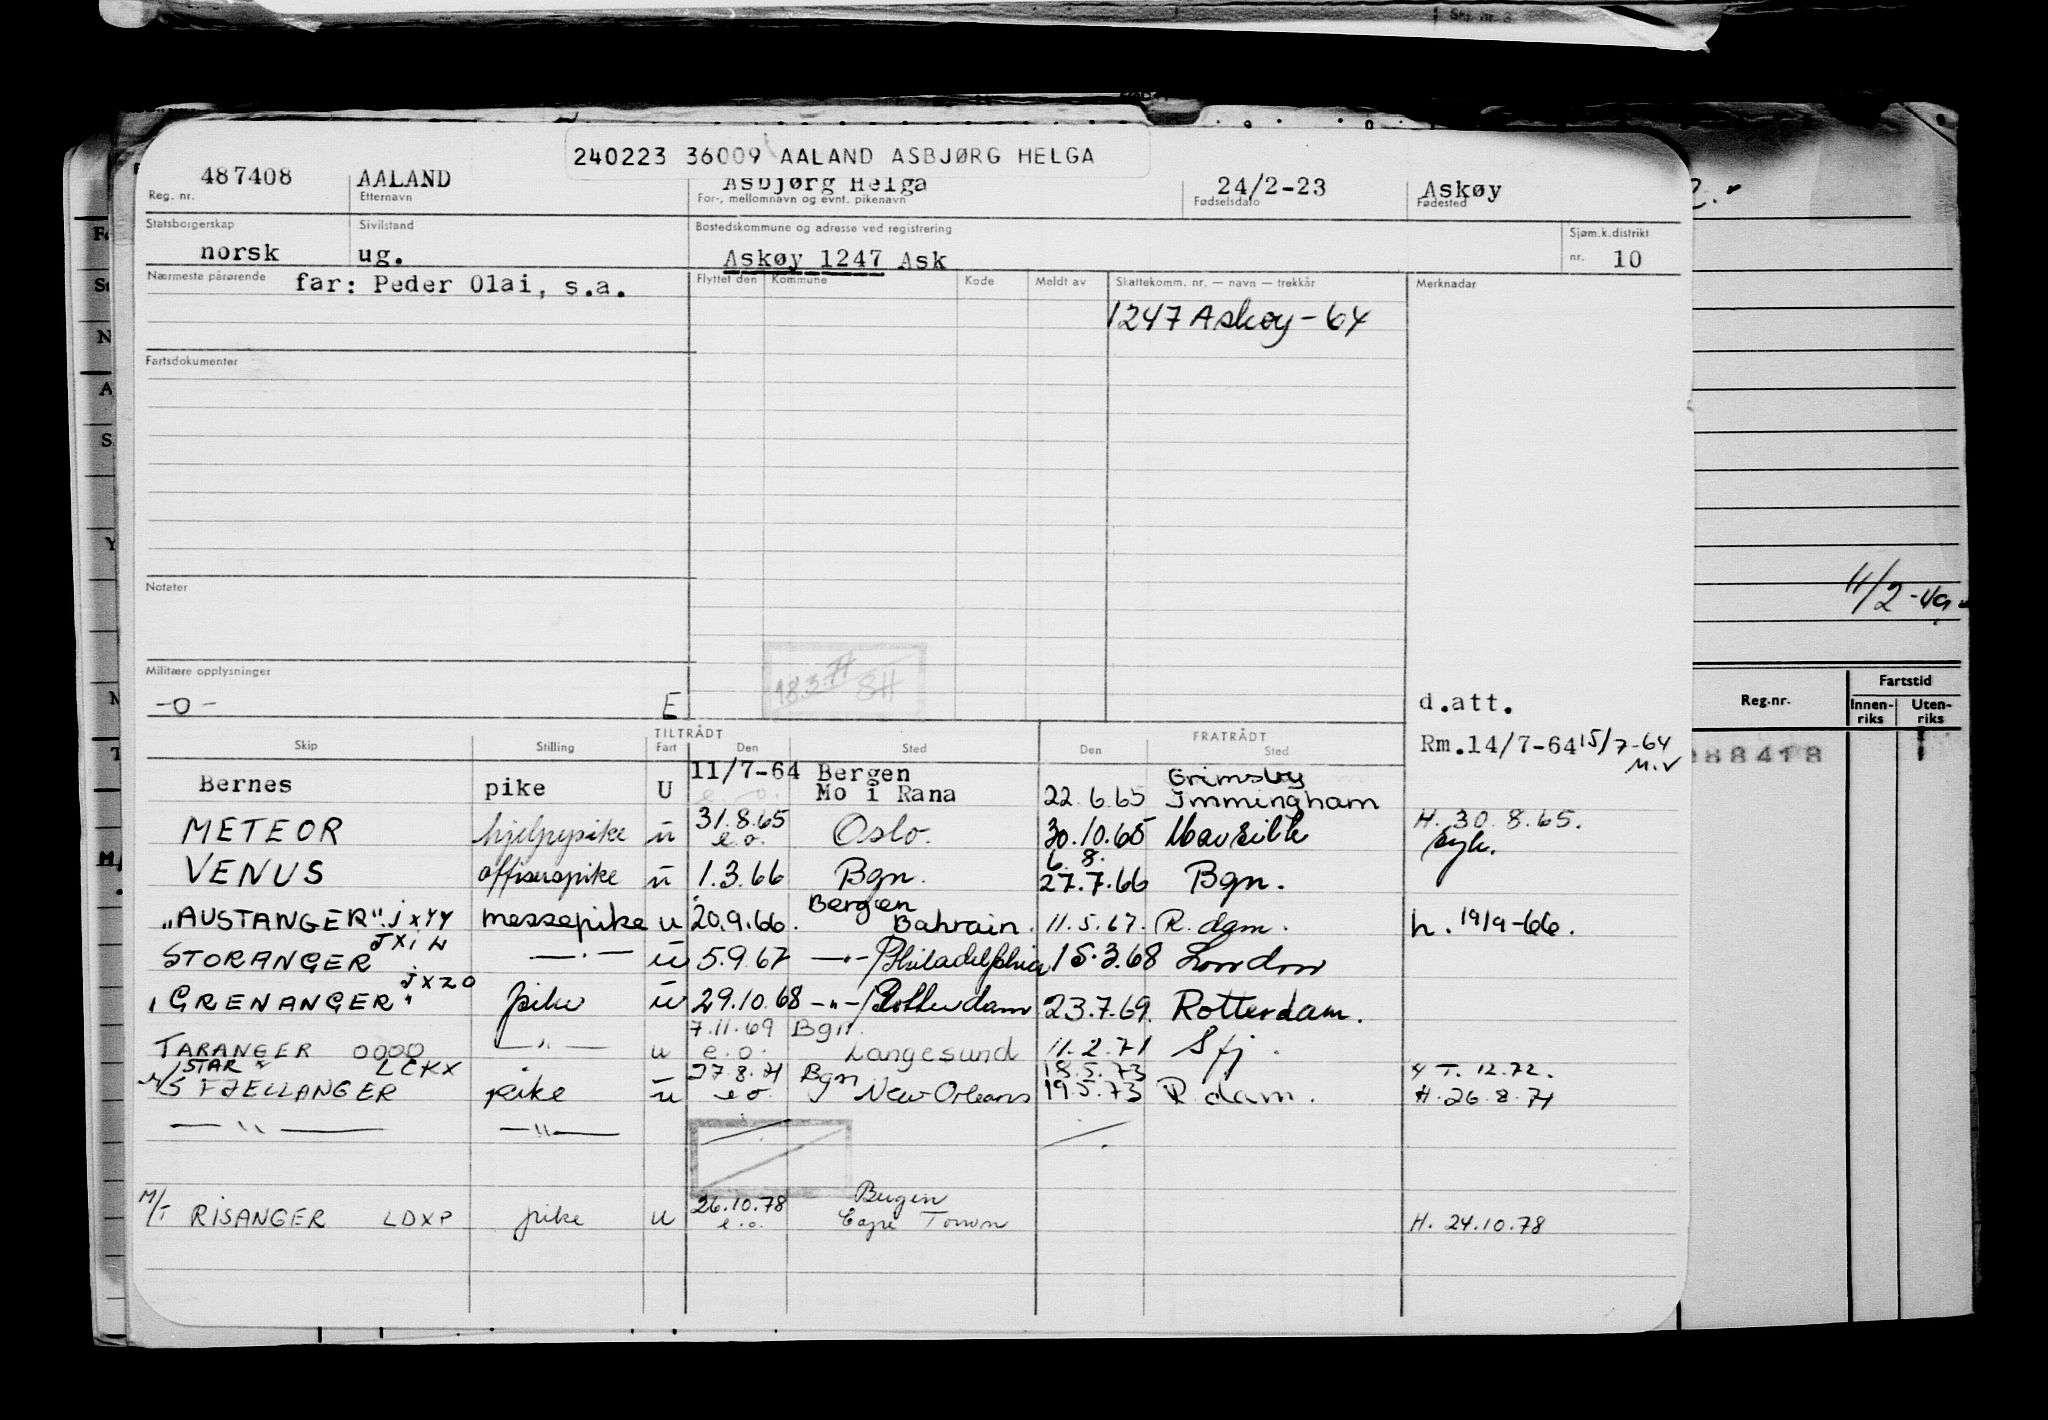 240223 36009 AALAND ASBJØRG HELGA
487408 AALAND Asbjørg Helga 24/2-23 Askøy
Reg. nr. Etternavn For-, mellomnavn og evnt. pikenavn Fødselsdato Fødested
Statsborgerskap Sivilstand Bostedskommune og adresse ved registrering Sjøm.k.distrikt
norsk ug. Askøy 1247 Ask nr. 10
Nærmeste pårørende far: Peder Olai, s.a. Flyttet den Kommune Kode Meldt av Skattekomm. nr. — navn — trekkår Merknader
1247 Askøy - 64
Fartsdokumenter
Notater
11/2-49
Militære opplysninger
-o- E d.att.
Reg.nr. Fartstid
Innen-riks Uten-riks
TILTRÅDT FRATRÅDT
Skip Stilling Fart Den Sted Den Sted Rm.14/7-64 15/7-64
M.V
11/7-64 Bergen Grimsby
Bernes pike U e.o. Mo i Rana 22.6.65 Immingham
METEOR hjelpepike u 31.8.65 e.o. Oslo. 30.10.65 H. 30.8.65.
syk.
6.8.
VENUS offiserspike u 1.3.66 Bgn. 27.7.66 Bgn.
Bergen
"AUSTANGER" JXYY messepike u 20.9.66. Bahrain. 11.5.67. R.dam. h. 19/9-66.
STORANGER JXIW —·— u 5.9.67 —·—/Philadelphia 15.3.68 London
"GRENANGER" JXZO pike u 29.10.68 -"-/Rotterdam 23.7.69. Rotterdam.
7.11.69 Bgn.
TARANGER OOOO —"— u e.o. Langesund 11.2.71 Sfj.
STAR LCKX 27.8.71 Bgn 18.5.73 T. 12.72.
M/S FJELLANGER pike u e.o. New Orleans 19.5.73 R.dam. H. 26.8.71
—"— —"—
26.10.78 Bergen
M/T RISANGER LDXP pike u e.o. Cape Town H. 24.10.78